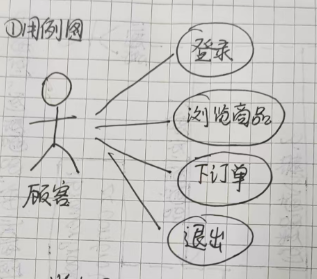 ①用例图
登录
浏览商品
下订单
顾客
退出